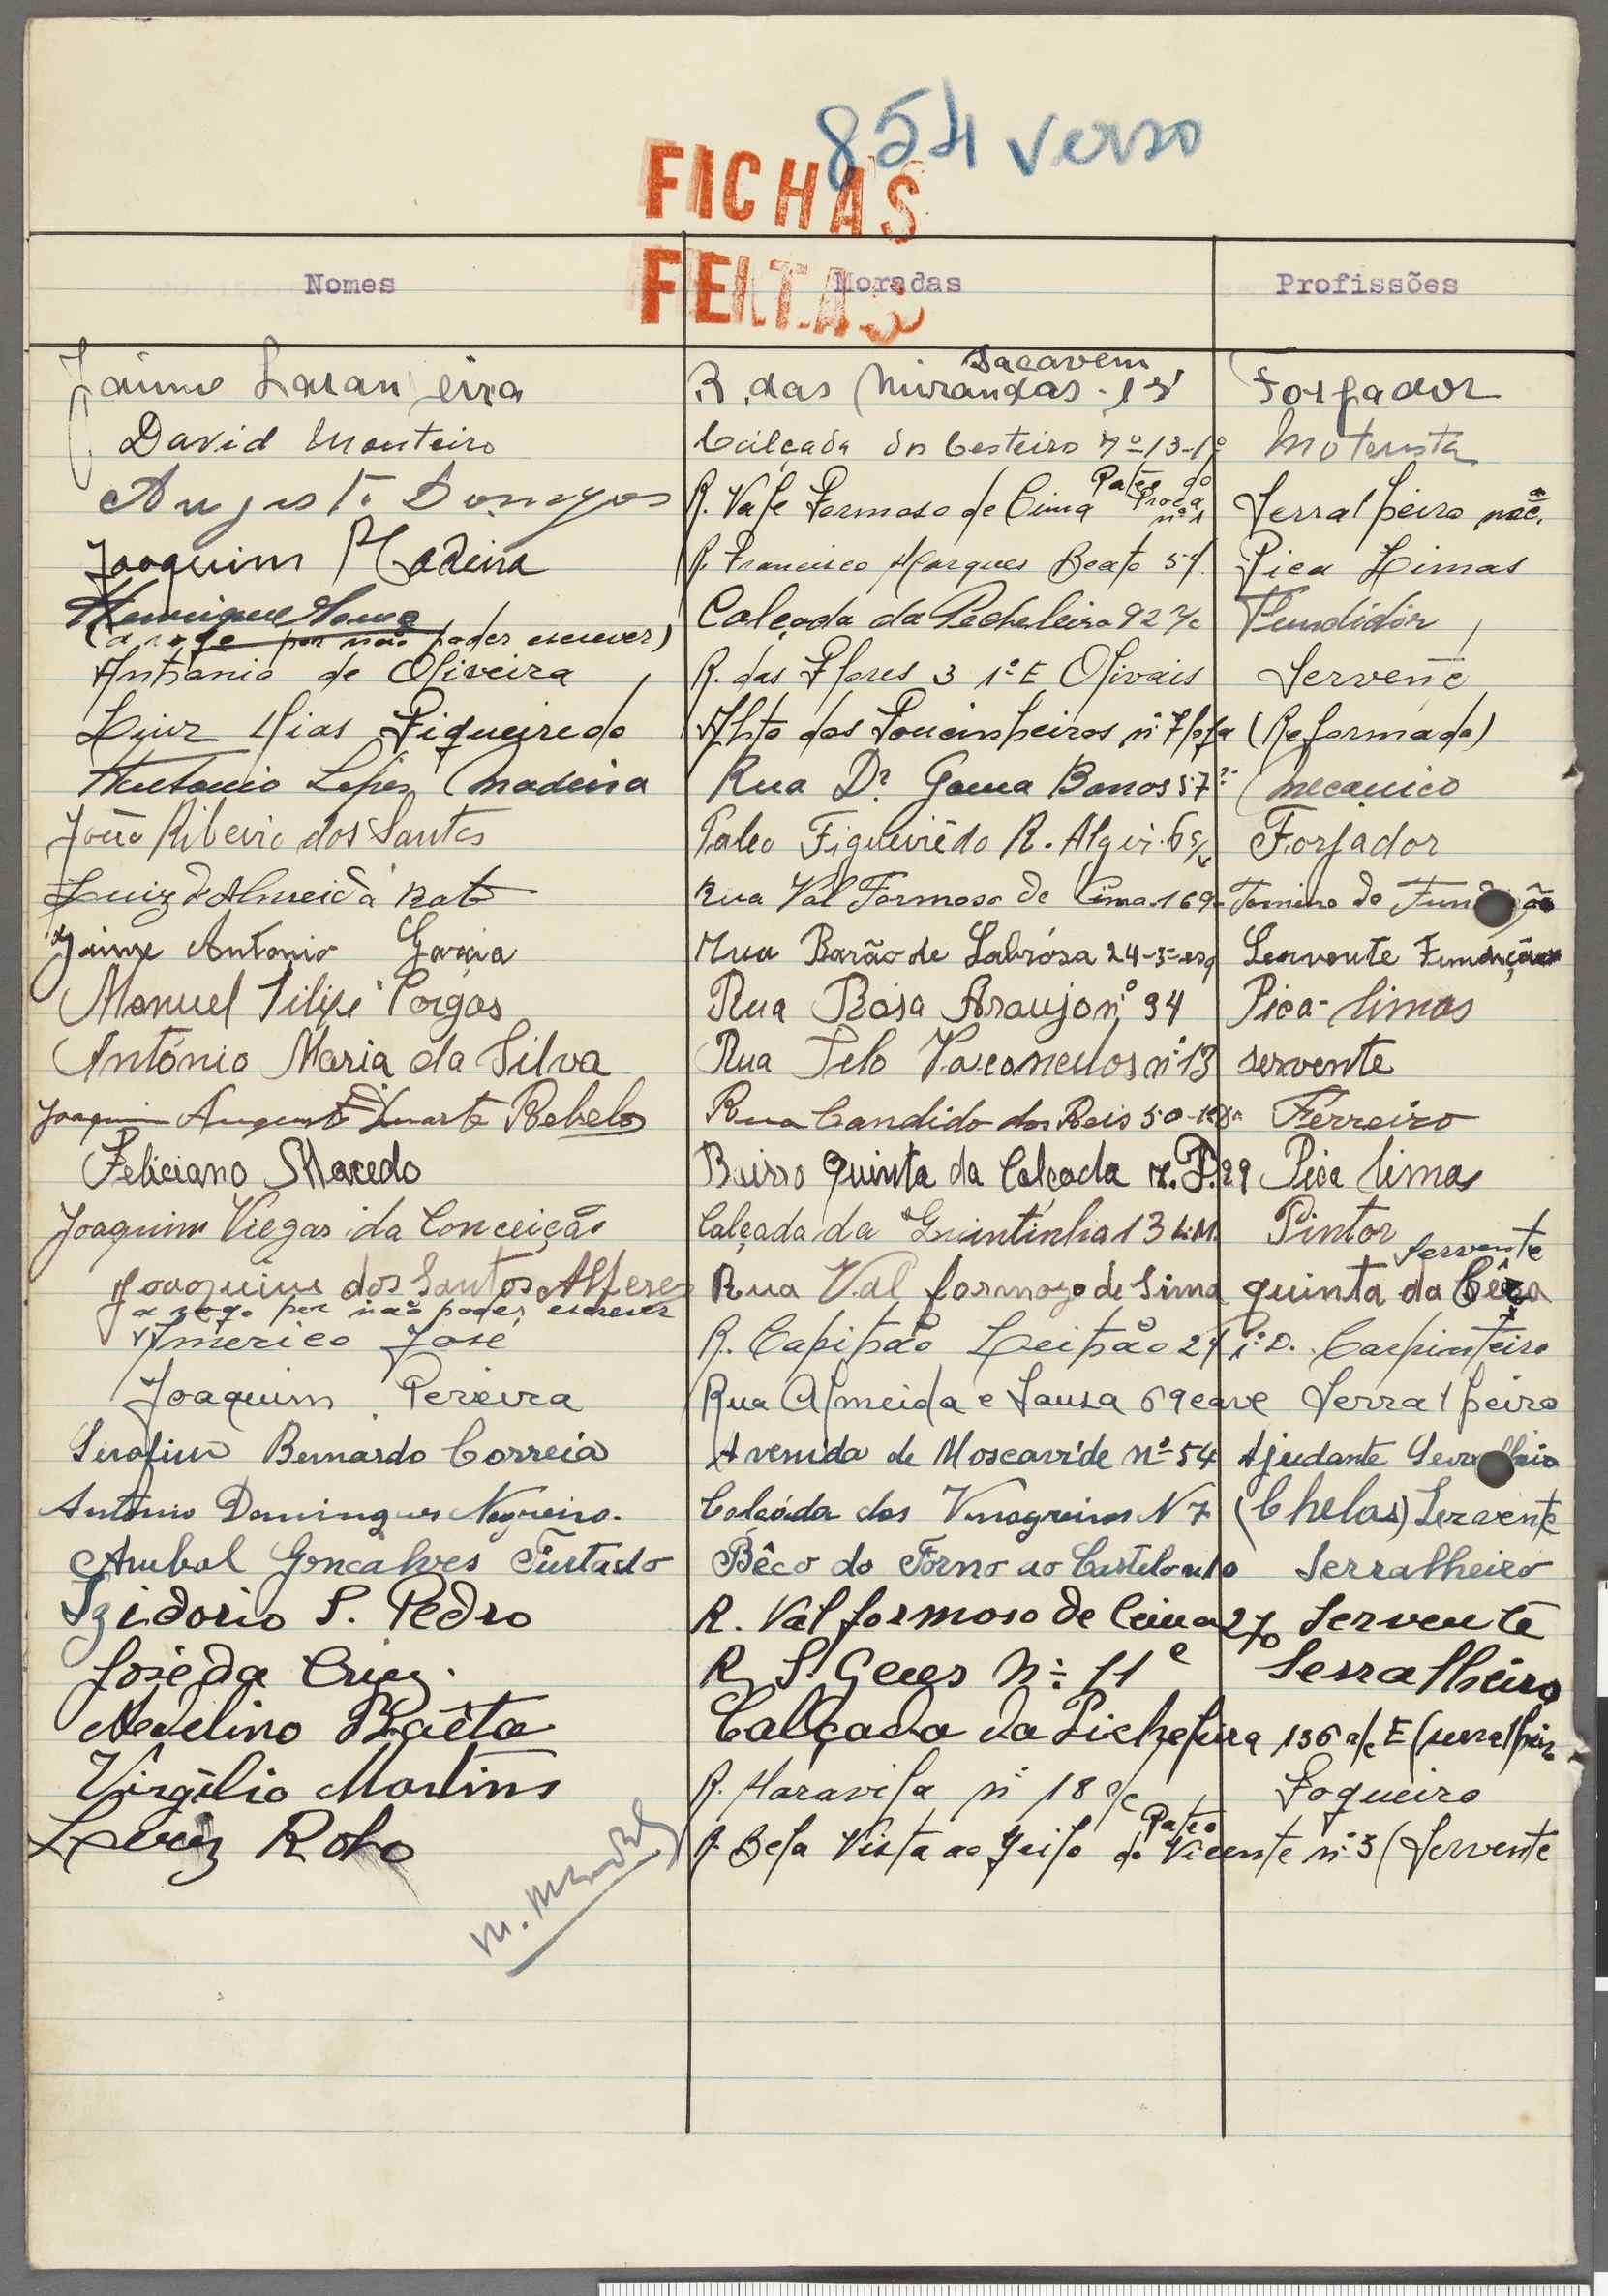 854 verso
FICHAS
FEITAS
Nomes Moradas Profissões
Jaime Laranjeira R. das Mirandas - 13 Sacavem Forjador
David Monteiro Calçada do Cesteiro nº 13-1º Motorista
Augusto Domingos R. Vale Formoso de Cima Pateo do Proença nº 1 Serralheiro mec.
Joaquim Madeira R. Francisco Marques Beato 54 Pica Limas
Henrique Calçada da Picheleira 92 r/c Fundidôr
(a rogo por não poder escrever)
Antonio de Oliveira R. das Flores 3 1º E Olivais Servente
Luiz Dias Figueiredo Alto dos Toucinheiros nº 7 loja (Reformado)
Antonio Lopes Madeira Rua Dr. Gama Barros 57 Mecanico
João Ribeiro dos Santos Pateo Figueirêdo R. Algés Forjador
Luiz d'Almeida Rato Rua Val Formoso de Cima 169 Torneiro de Fundição
Jaime Antonio Garcia Rua Barão de Sabrósa 24-3º-esq Servente Fundição
Manuel Filipe Porgas Rua Rosa Araujo nº 34 Pica-limas
António Maria da Silva Rua Telo Vasconcelos nº 13 servente
Joaquim Augusto Duarte Rebelo Rua Candido dos Reis 50 Ferreiro
Feliciano Macedo Bairro Quinta da Calçada 29 Pica limas
Joaquim Viegas da Conceição Calçada da Quintinha 13 Pintor
Joaquim dos Santos Alferes Rua Val formozo de Sima quinta da Cêra Servente
a rogo por não poder escrever
Americo José R. Capitão Leitão 24 1º D. Carpinteiro
Joaquim Pereira Rua Almeida e Sousa 69 cave Serralheiro
Serafim Bernardo Correia Avenida de Moscavide nº 54 Ajudante Serralheiro
António Domingues Negreiro. Calçáda dos Vinagreiros N 7 (Chelas) Servente
Anibal Gonçalves Furtado Bêco do Forno ao Castelo Serralheiro
Izidorio S. Pedro R. Val formoso de Cima 270 Servente
José da Cruz. R. S. Gens nº 11 Serralheiro
Avelino Baêta Calçada da Picheleira 136 r/c E (serralheiro
Virgilio Martins R. Maravila nº 18 r/c Foqueiro
Luiz Roko R. Bela Vista ao Grilo Pateo do Vicente nº 3 (Servente